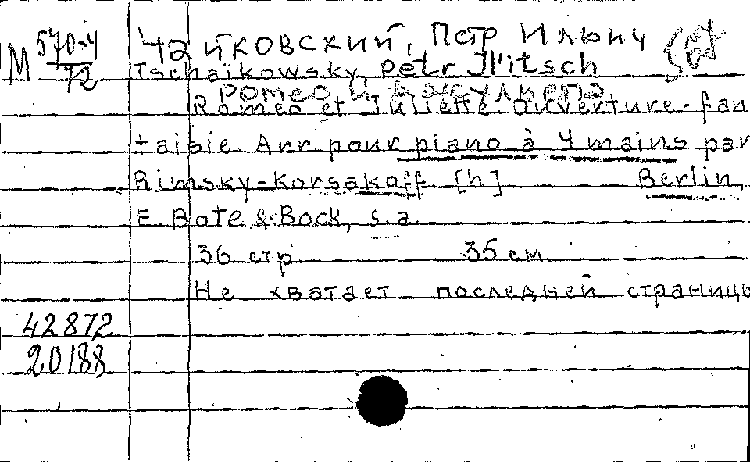 М 570-4/72
Чайковский, Петр Ильич
Tschaikowsky, Petr Il'itsch
Ромео и Джульета
Romeo et Juliette Ouverture-fan
taisie Arr pour piano à 4 mains par
Rimsky-Korsakoff [h] Berlin,
E. Bote & Bock, s.a.
36 стр 35 см
Не хватает последней страницы
42872
20188